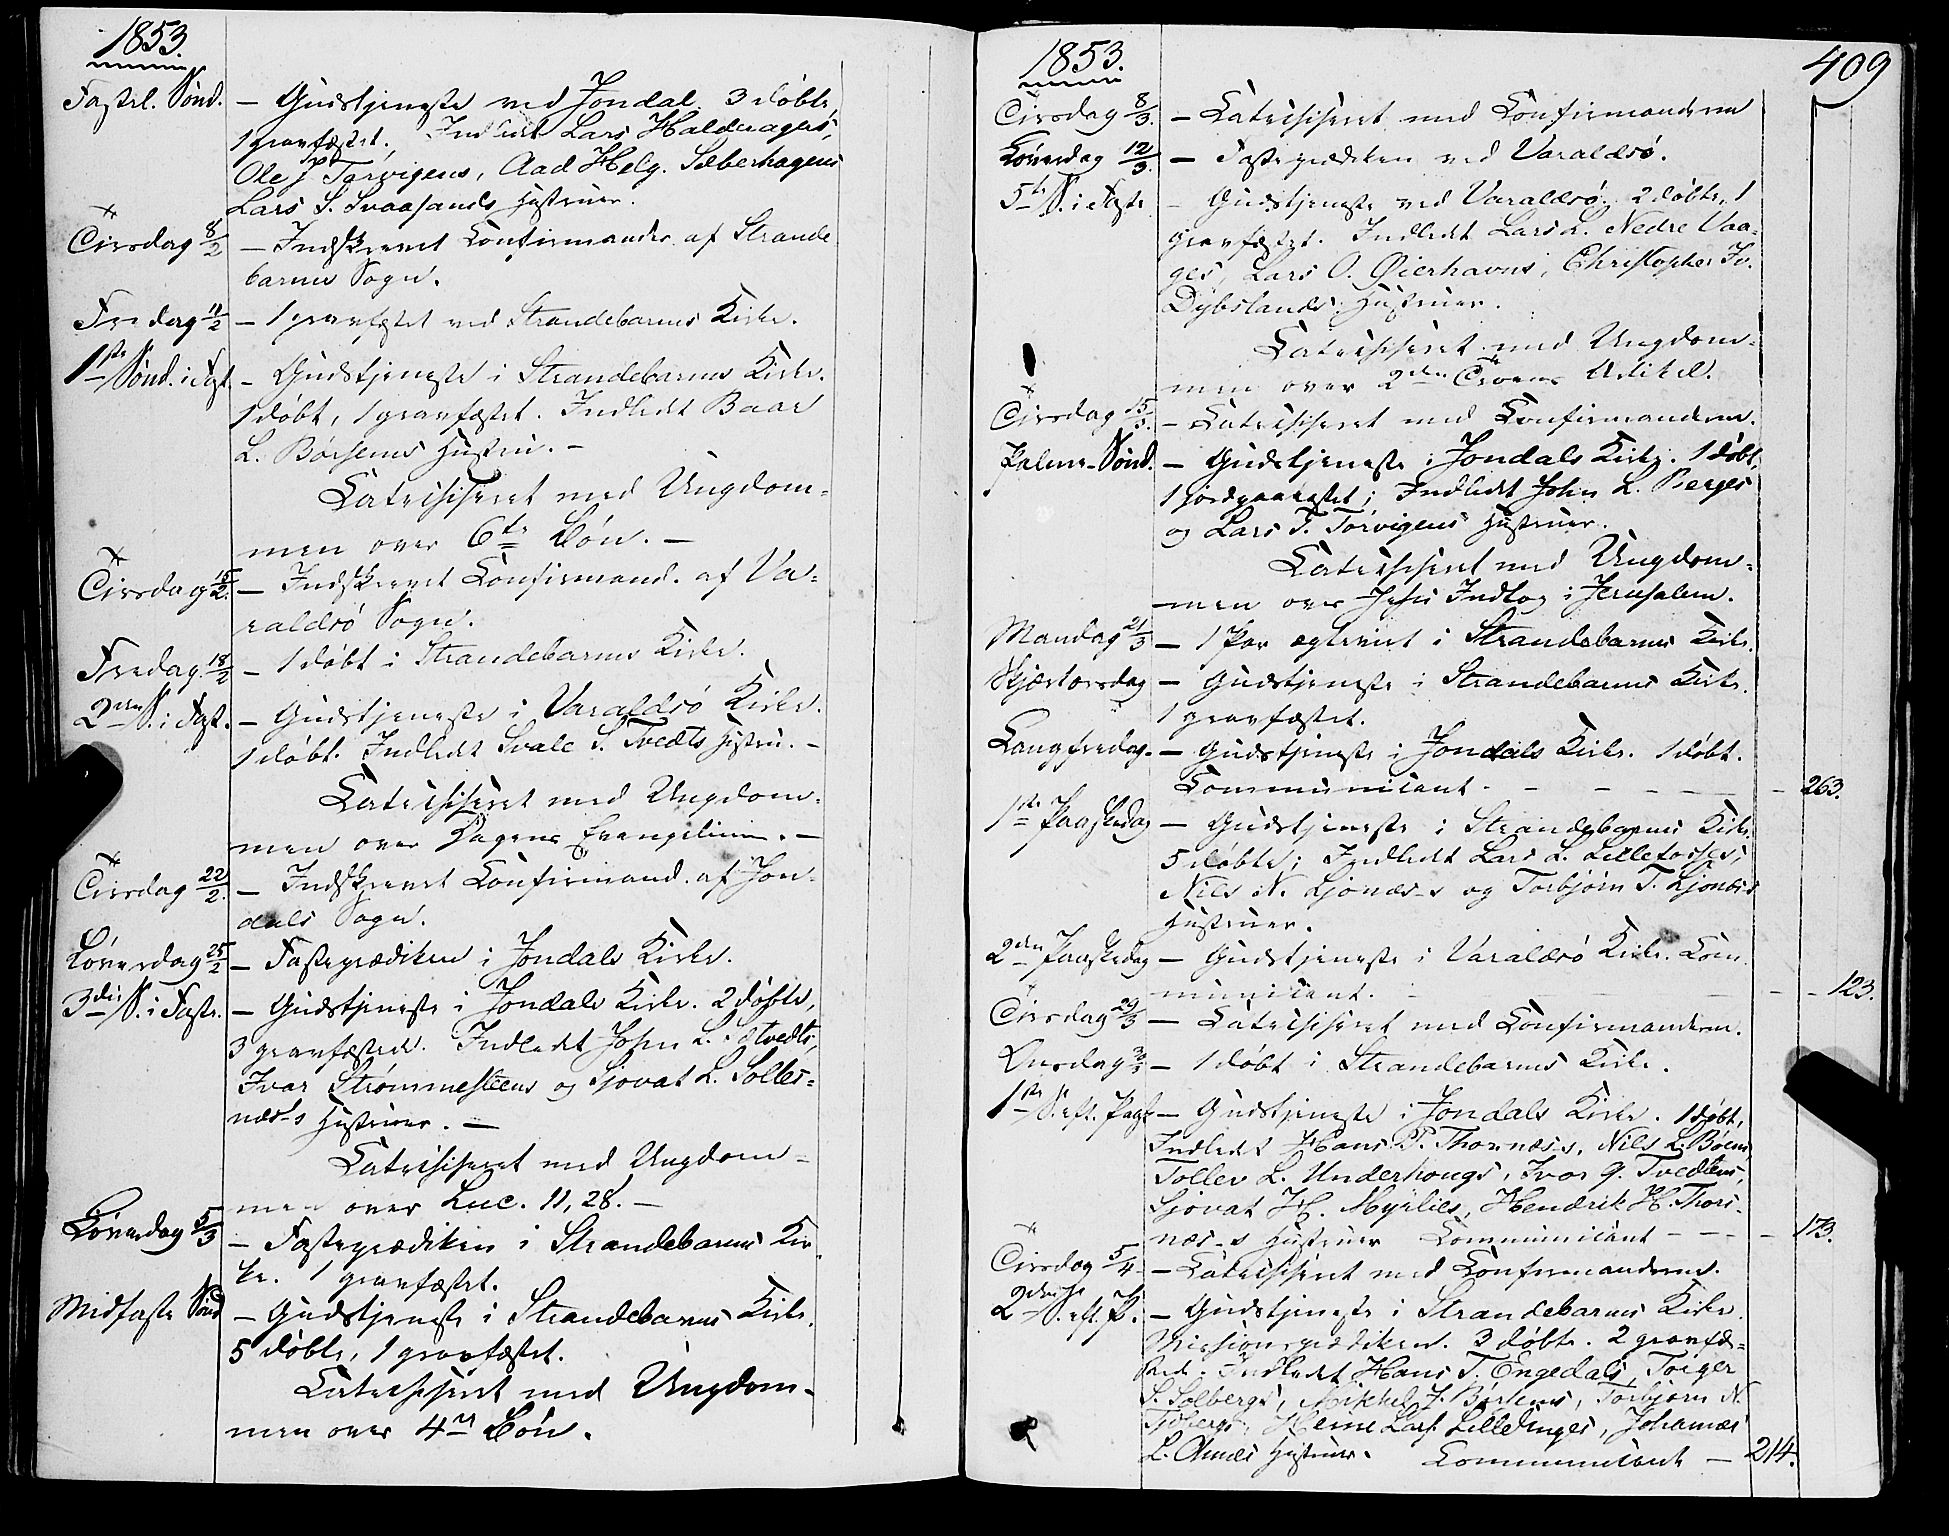 1853.
Fastel. Sønd. - Gudstjeneste ved Jondal. 3 døbte,
1 gravfæstet. Indledt Lars Halderagers,
Ole J. Tørvigens, Aad Helg. Sæberhagens
Lars S. Svaasands Hustruer.
Tirsdag 8/2 - Indskrevet Confirmander af Strande
barms Sogn.
Fredag 11/2 - 1 gravfæstet ved Strandebarms Kirke.
1ste Sønd. i Fast. - Gudstjeneste i Strandebarms Kirke.
1 døbt, 1 gravfæstet. Indledt Baar
L. Børsems Hustru. -
Catechiseret med Ungdom-
men over 6te Bøn. -
Tirsdag 15/2. - Indskrevet Confirmand. af Va-
raldsö Sogn.
Fredag 18/2 - 1 døbt i Strandebarms Kirke.
2den S. i Fast. - Gudstjeneste i Varaldsö Kirke.
1 døbt. Indledt Svale S. Tvedts Hustru. -
Catechiseret med Ungdom-
men over Dagens Evangelium. -
Tirsdag 22/2. - Indskrevet Confirmand. af Jon-
dals Sogn.
Løverdag 25/2 - Fasteprædiken i Jondals Kirke.
3die S. i Faste. - Gudstjeneste i Jondals Kirke. 2 døbte,
3 gravfæstede. Indledt John L. Tvedts,
Ivar Strømmesteens og Sjovat L. Solles-
næs-s Hustruer. -
Catechiseret med Ungdom-
men over Luc. 11,28. -
Løverdag 5/3 - Fasteprædiken i Strandebarms Kir
ke. 1 gravfæstet.
Midfaste Sønd - Gudstjeneste i Strandebarms Kirke.
5 døbte, 1 gravfæstet.
Catechiseret med Ungdom-
men over 4de Bøn.
1853.
409
Tirsdag 8/3. - Catechiseret med Confirmanderne
Løverdag 12/3. - Fasteprædiken ved Varaldsö.
5te S. i Faste - Gudstjeneste ved Varaldsö. 2 døbte, 1
gravfæstet. Indledt Lars L. Nedre Vaa-
ges, Lars O. Øierhavns, Christopher Iv.
Dybslands Hustruer.
Catechiseret med Ungdom-
men over 2den Troens Artikel.
Tirsdag 15/3. - Catechiseret med Confirmanderne.
Palme-Sønd. - Gudstjeneste i Jondals Kirke. 1 døbt,
1 jordpaakastet; Indledt John L. Berges
og Lars T. Tørvigens Hustruer.
Catechiseret med Ungdom-
men over Jesu Indtog i Jerusalem.
Mandag 21/3 - 1 Par ægteviet i Strandebarms Kirke.
Skjærtorsdag - Gudstjeneste i Strandebarms Kirke.
1 gravfæstet.
Langfredag. - Gudstjeneste i Jondals Kirke. 1 døbt.
Communicant. - - - - - - 263.
1ste Paaskedag - Gudstjeneste i Strandebarms Kirke.
5 døbte; Indledt Lars L. Lilletorfes,
Nils N. Ljonæs-s og Torbjørn T. Ljonæs-s
Hustruer.
2den Paaskedag - Gudstjeneste i Varaldsö Kirke. Com
municant. - - - - 123.
Tirsdag 29/3 - Catechiseret med Confirmanderne.
Onsdag 30/3 - 1 døbt i Strandebarms Kirke.
1ste S. eft. Paask - Gudstjeneste i Jondals Kirke. 1 døbt,
Indledt Hans P. Thornæs-s, Nils L. Bøens,
Tollev L. Underhougs, Ivar G. Tvedtens,
Sjovat H. Myrlies, Hendrik H. Thors-
næs-s Hustruer Communicant - - - - 173.
Tirsdag 5/4 - Catechiseret med Confirmanderne.
2den S. eft. P. - Gudstjeneste i Strandebarms Kirke.
Missionsprædiken. 3 døbte. 2 gravfæ-
stede. Indledt Hans T. Engedals, Torger
S. Solbergs, Mikkel J. Børsems, Torbjørn N.
Heine Lars. Lilletinges, Johannes
L. Hustruer. Communicant - 214.